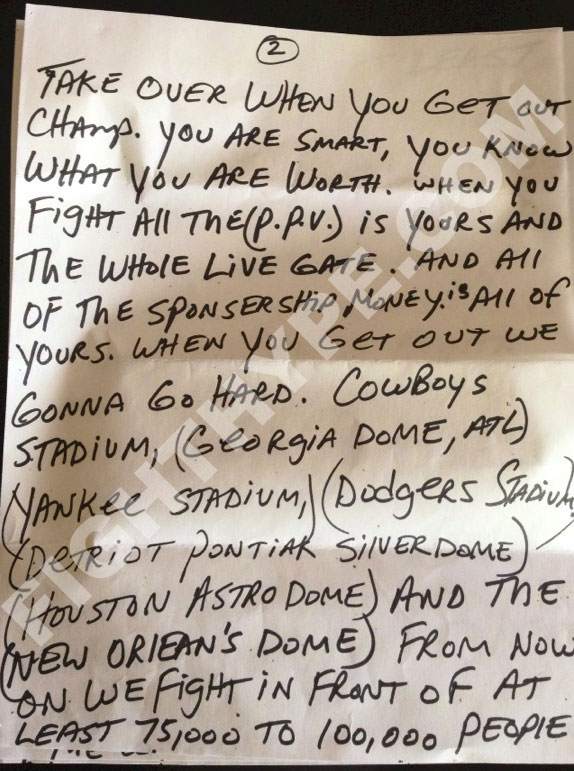 2
TAKE OVER WHEN YOU GET OUT
CHAMP. YOU ARE SMART, YOU KNOW
WHAT YOU ARE WORTH. WHEN YOU
FIGHT All THE (P.P.V.) IS YOURS AND
THE WHOLE LIVE GATE. AND All
OF THE SPONSERSHIP MONEY. is All OF
YOURS. WHEN YOU GET OUT WE
GONNA GO HARD. COWBOYS
STADIUM, (GEORGIA DOME, ATL)
(YANKEE STADIUM,) (DODGERS STADIUM,
(DETRIOT PONTIAK SILVERDOME)
(HOUSTON ASTRO DOME) AND THE
(NEW ORlEAN'S DOME) FROM NOW
ON WE FIGHT IN FRONT OF AT
LEAST 75,000 TO 100,000 PEOPLE
FIGHTHYPE.COM